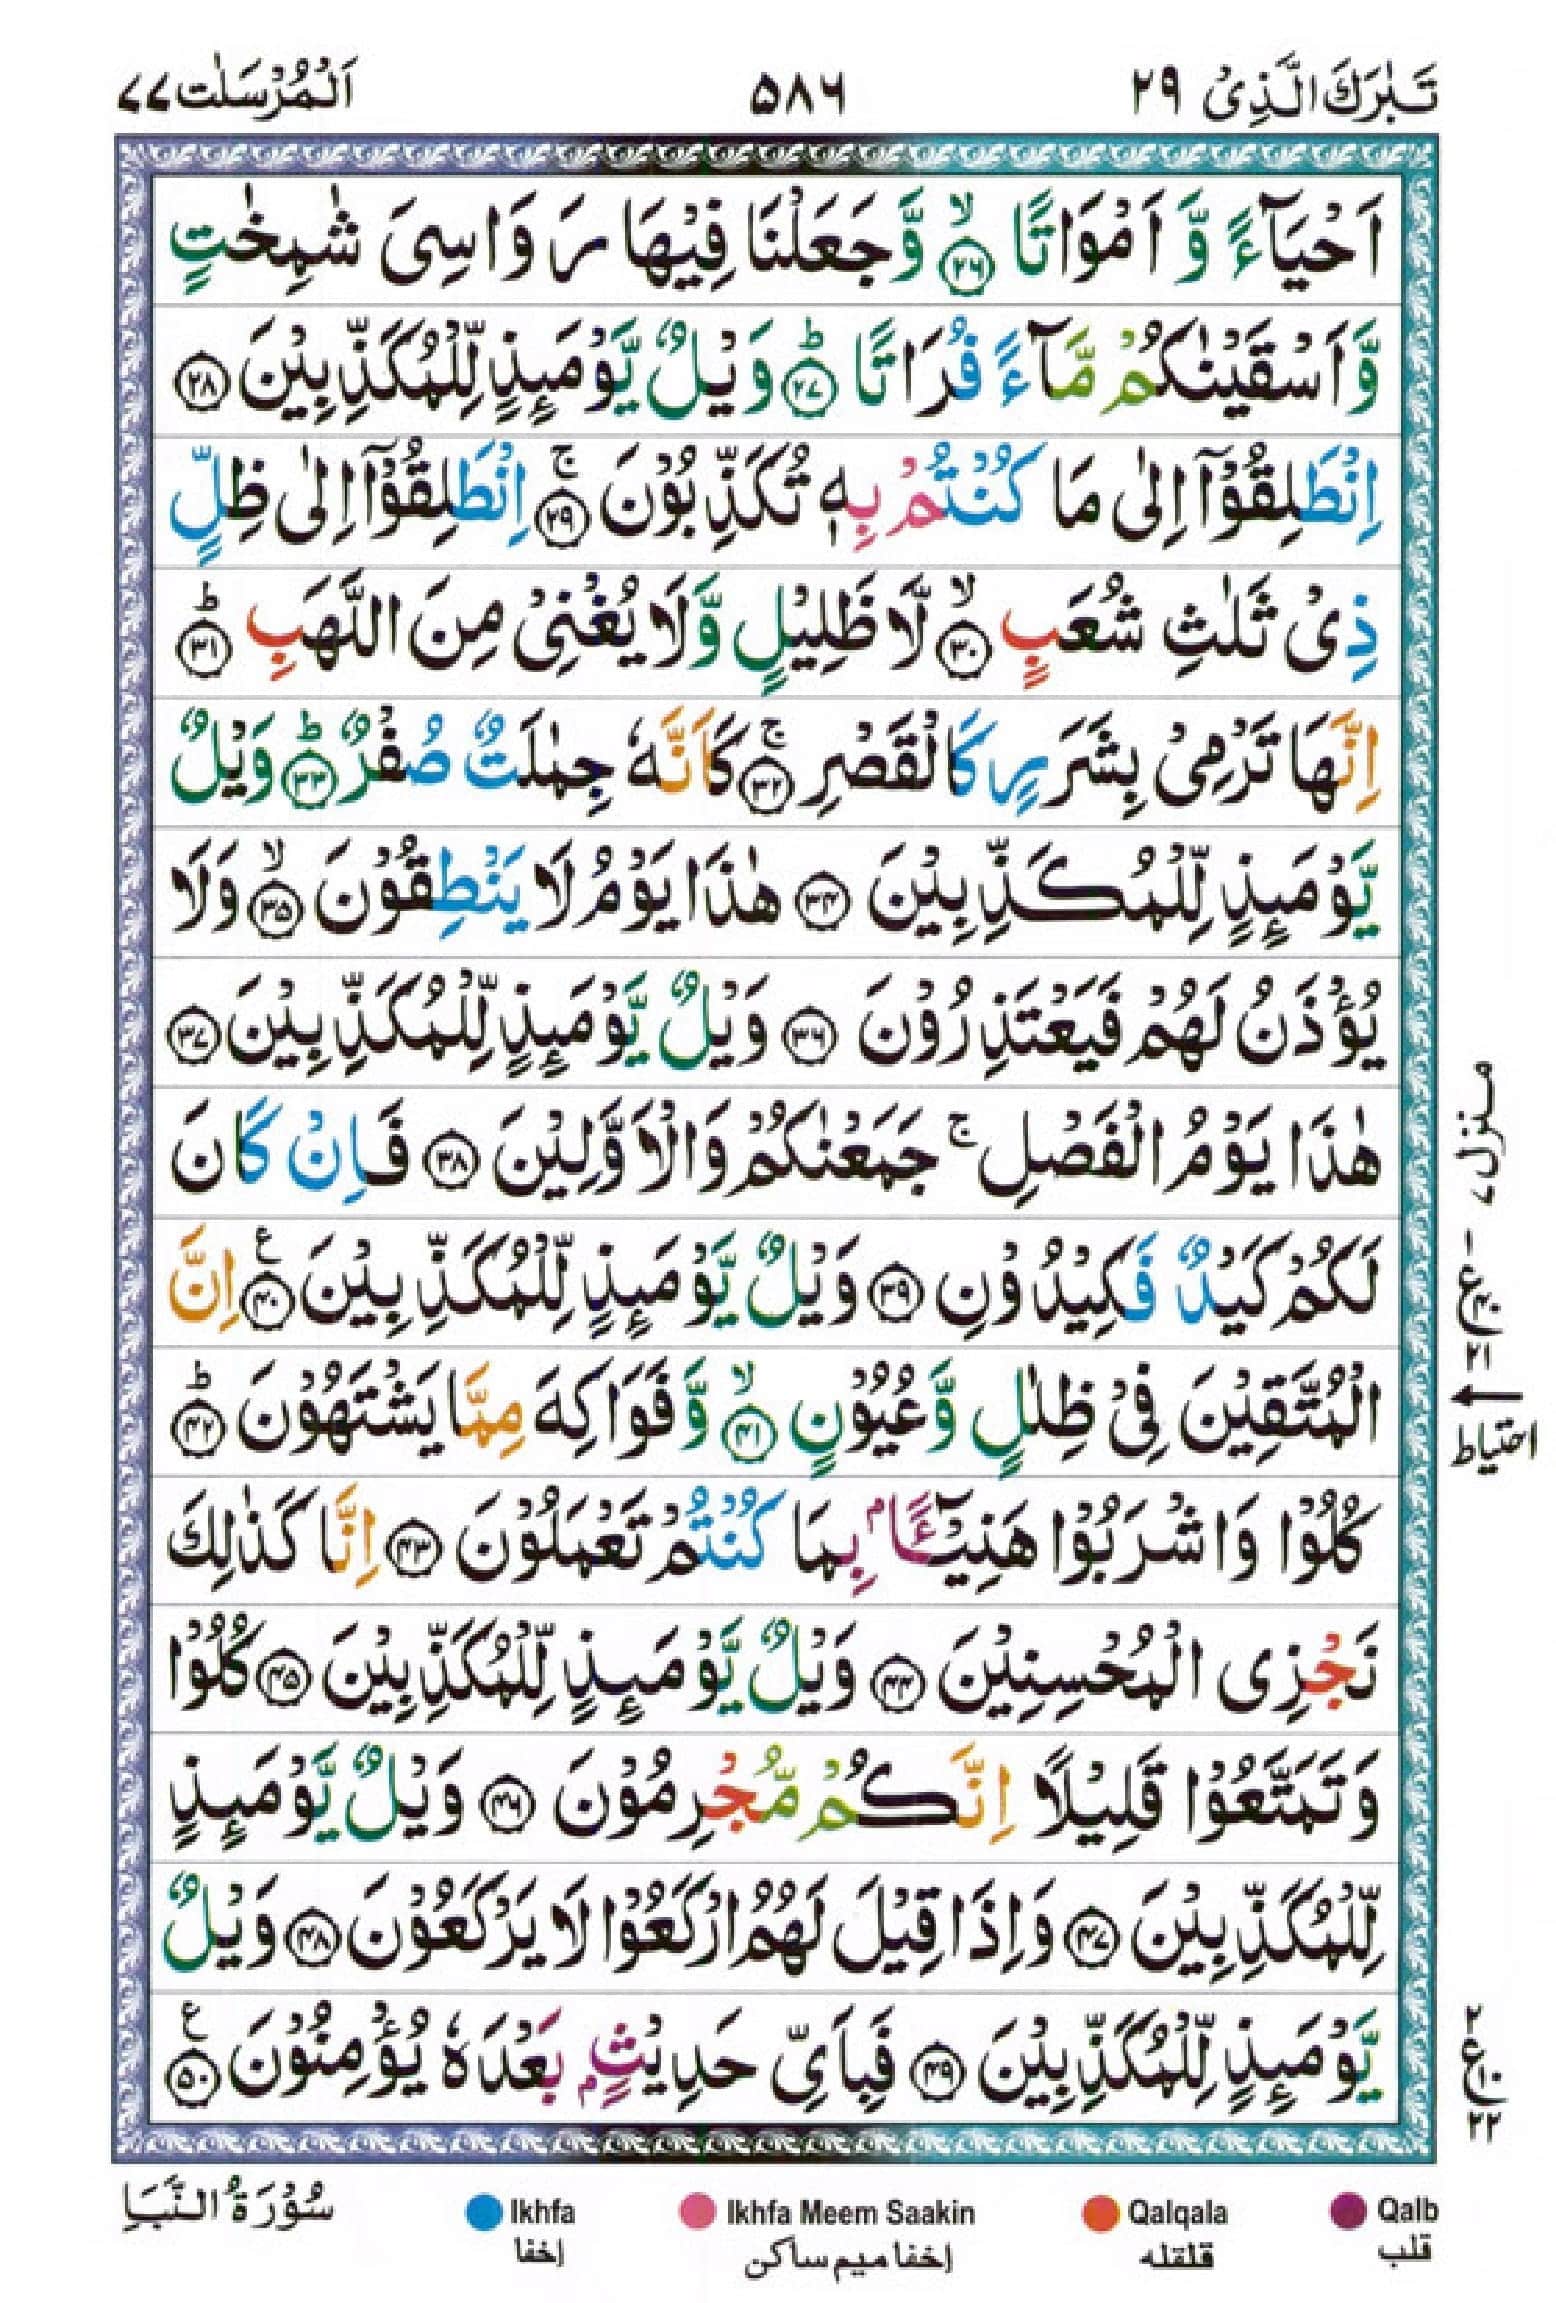 تَبٰرَكَ الَّذِىْ ٢٩
٥٨٦
اَلْمُرْسَلٰت ٧٧
اَحْيَآءً وَّ اَمْوَاتًا ۙ﴿٢٦﴾ وَّجَعَلْنَا فِيْهَا رَوَاسِىَ شٰمِخٰتٍ
وَّاَسْقَيْنٰكُمْ مَّآءً فُرَاتًا ؕ﴿٢٧﴾ وَيْلٌ يَّوْمَئِذٍ لِّلْمُكَذِّبِيْنَ ﴿٢٨﴾
اِنْطَلِقُوْٓا اِلٰى مَا كُنْتُمْ بِهٖ تُكَذِّبُوْنَ ۚ﴿٢٩﴾ اِنْطَلِقُوْٓا اِلٰى ظِلٍّ
ذِىْ ثَلٰثِ شُعَبٍ ۙ﴿٣٠﴾ لَّا ظَلِيْلٍ وَّلَا يُغْنِىْ مِنَ اللَّهَبِ ؕ﴿٣١﴾
اِنَّهَا تَرْمِىْ بِشَرَرٍ كَالْقَصْرِ ۚ﴿٣٢﴾ كَاَنَّهٗ جِمٰلَتٌ صُفْرٌ ؕ﴿٣٣﴾ وَيْلٌ
يَّوْمَئِذٍ لِّلْمُكَذِّبِيْنَ ﴿٣٤﴾ هٰذَا يَوْمُ لَا يَنْطِقُوْنَ ۙ﴿٣٥﴾ وَلَا
يُؤْذَنُ لَهُمْ فَيَعْتَذِرُوْنَ ﴿٣٦﴾ وَيْلٌ يَّوْمَئِذٍ لِّلْمُكَذِّبِيْنَ ﴿٣٧﴾
هٰذَا يَوْمُ الْفَصْلِ ۚ جَمَعْنٰكُمْ وَالْاَوَّلِيْنَ ﴿٣٨﴾ فَاِنْ كَانَ
لَكُمْ كَيْدٌ فَكِيْدُوْنِ ﴿٣٩﴾ وَيْلٌ يَّوْمَئِذٍ لِّلْمُكَذِّبِيْنَ ﴿٤٠﴾ ع اِنَّ
الْمُتَّقِيْنَ فِىْ ظِلٰلٍ وَّعُيُوْنٍ ۙ﴿٤١﴾ وَّفَوَاكِهَ مِمَّا يَشْتَهُوْنَ ؕ﴿٤٢﴾
كُلُوْا وَاشْرَبُوْا هَنِيْٓـًٔۢا بِمَا كُنْتُمْ تَعْمَلُوْنَ ﴿٤٣﴾ اِنَّا كَذٰلِكَ
نَجْزِى الْمُحْسِنِيْنَ ﴿٤٤﴾ وَيْلٌ يَّوْمَئِذٍ لِّلْمُكَذِّبِيْنَ ﴿٤٥﴾ كُلُوْا
وَتَمَتَّعُوْا قَلِيْلًا اِنَّكُمْ مُّجْرِمُوْنَ ﴿٤٦﴾ وَيْلٌ يَّوْمَئِذٍ
لِّلْمُكَذِّبِيْنَ ﴿٤٧﴾ وَاِذَا قِيْلَ لَهُمُ ارْكَعُوْا لَا يَرْكَعُوْنَ ﴿٤٨﴾ وَيْلٌ
يَّوْمَئِذٍ لِّلْمُكَذِّبِيْنَ ﴿٤٩﴾ فَبِاَىِّ حَدِيْثٍۢ بَعْدَهٗ يُؤْمِنُوْنَ ﴿٥٠﴾ ع
منزل ٧
ع
٢١
احتياط
٢
ع ١٠
٢٢
سُوْرَةُ النَّبَاِ
Ikhfa
إخفا
Ikhfa Meem Saakin
إخفا ميم ساكن
Qalqala
قلقله
Qalb
قلب